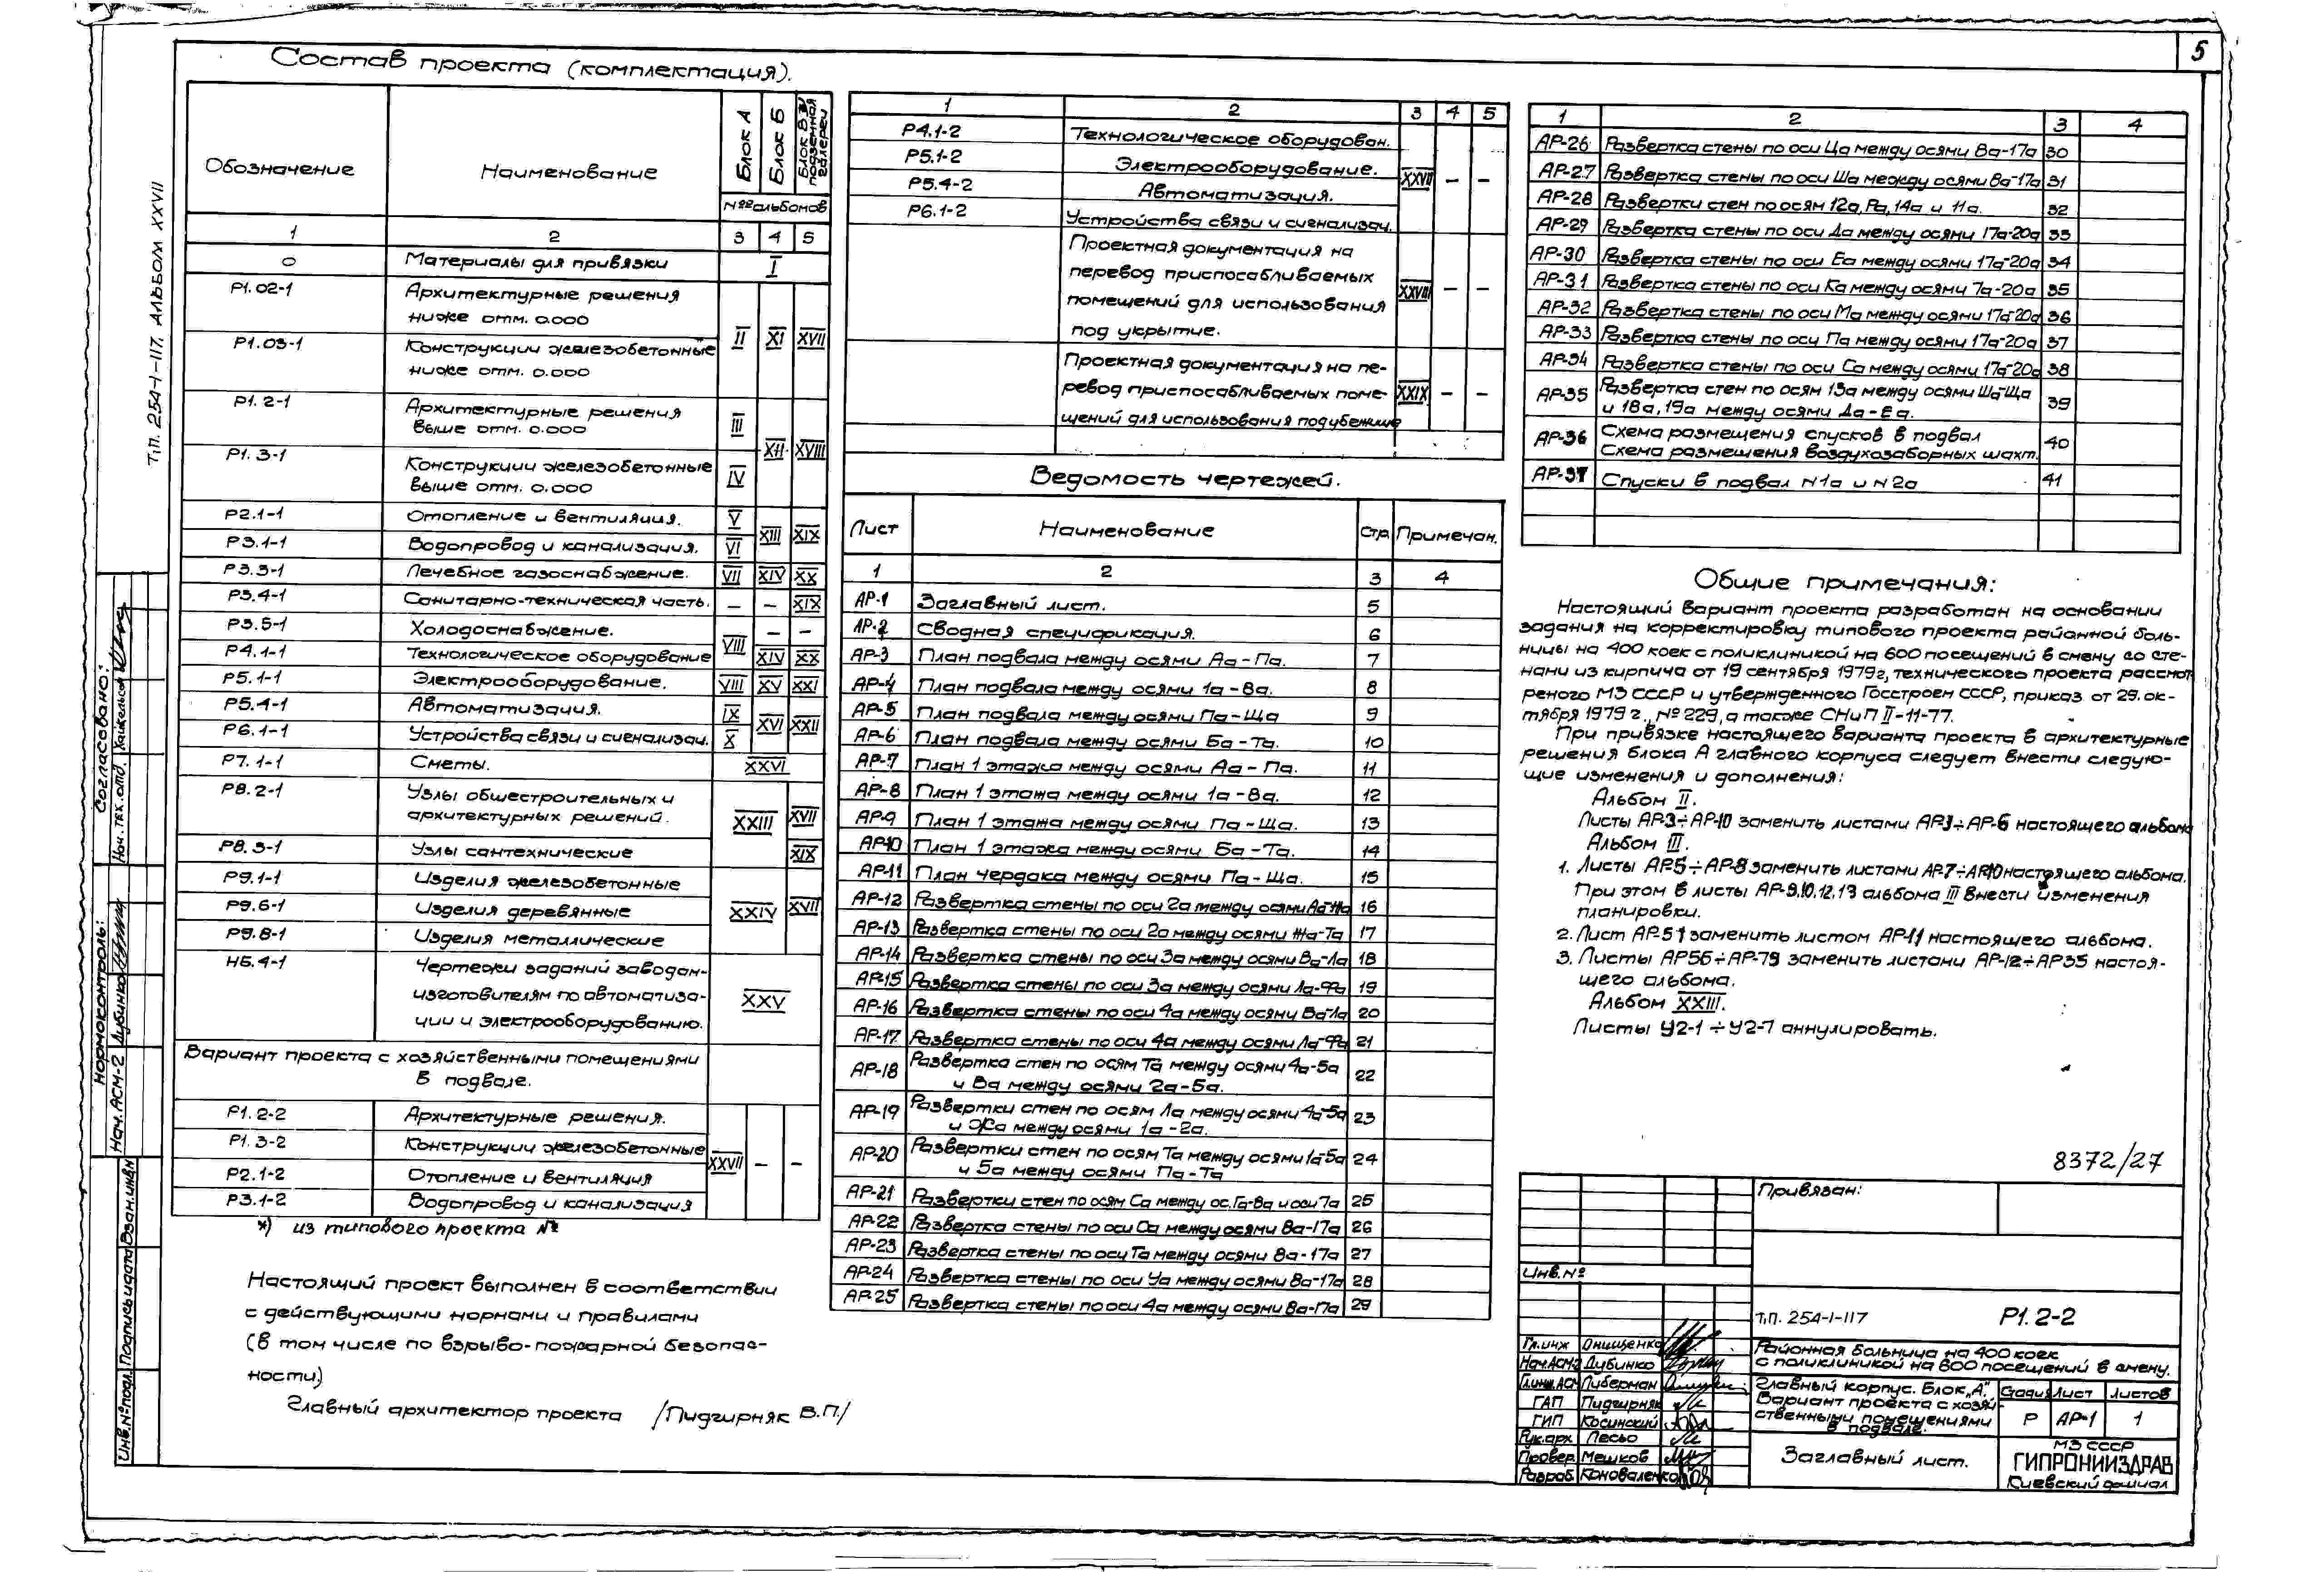 5
Т.П. 254-1-117. АЛЬБОМ XXVII
Состав проекта (комплектация).
Обозначение | Наименование | Блок А | Блок Б | Блок В и подземная галереи
№№ альбомов
1 | 2 | 3 | 4 | 5
0 | Материалы для привязки | I
Р1.02-1 | Архитектурные решения
ниже отм. 0.000
II | XI | XVII
Р1.03-1 | Конструкции железобетонные
ниже отм. 0.000
Р1.2-1 | Архитектурные решения
выше отм. 0.000 | III
XII | XVIII
Р1.3-1 | Конструкции железобетонные
выше отм. 0.000 | IV
Р2.1-1 | Отопление и вентиляция. | V
XIII | XIX
Р3.1-1 | Водопровод и канализация. | VI
Р3.3-1 | Лечебное газоснабжение. | VII | XIV | XX
Р3.4-1 | Санитарно-техническая часть. | – | – | XIX
Р3.5-1 | Холодоснабжение. | VIII | – | –
Р4.1-1 | Технологическое оборудование | XIV | XX
Р5.1-1 | Электрооборудование. | VIII | XV | XXI
Р5.4-1 | Автоматизация. | IX | XVI | XXII
Р6.1-1 | Устройства связи и сигнализац. | X
Р7.1-1 | Сметы. | XXVI
Р8.2-1 | Узлы общестроительных и
архитектурных решений. | XXIII | XVII
Р8.3-1 | Узлы сантехнические | XIX
Р9.1-1 | Изделия железобетонные
Р9.6-1 | Изделия деревянные | XXIV | XVII
Р9.8-1 | Изделия металлические
Н6.4-1 | Чертежи заданий заводам-
изготовителям по автоматиза- | XXV
ции и электрооборудованию.
Вариант проекта с хозяйственными помещениями
в подвале.
Р1.2-2 | Архитектурные решения.
Р1.3-2 | Конструкции железобетонные
XXVII | – | –
Р2.1-2 | Отопление и вентиляция
Р3.1-2 | Водопровод и канализация
*) из типового проекта №
Настоящий проект выполнен в соответствии
с действующими нормами и правилами
(в том числе по взрыво-пожарной безопас-
ности)
Главный архитектор проекта /Пидгирняк В.П./
1 | 2 | 3 | 4 | 5
Р4.1-2 | Технологическое оборудован.
Р5.1-2 | Электрооборудование.
XXVII | – | –
Р5.4-2 | Автоматизация.
Р6.1-2 | Устройства связи и сигнализац.
Проектная документация на
перевод приспосабливаемых
помещений для использования | XXVIII | – | –
под укрытие.
Проектная документация на пе-
ревод приспосабливаемых поме- | XXIX | – | –
щений для использования под убежище
Ведомость чертежей.
Лист | Наименование | Стр | Примечан.
1 | 2 | 3 | 4
АР-1 | Заглавный лист. | 5
АР-2 | Сводная спецификация. | 6
АР-3 | План подвала между осями Аа-Па. | 7
АР-4 | План подвала между осями 1а-8а. | 8
АР-5 | План подвала между осями Па-Ща | 9
АР-6 | План подвала между осями Ба-Та. | 10
АР-7 | План 1 этажа между осями Аа-Па. | 11
АР-8 | План 1 этажа между осями 1а-8а. | 12
АР-9 | План 1 этажа между осями Па-Ща. | 13
АР-10 | План 1 этажа между осями Ба-Та. | 14
АР-11 | План чердака между осями Па-Ща. | 15
АР-12 | Развертка стены по оси 2а между осями | 16
АР-13 | Развертка стены по оси 2а между осями Жа-Та | 17
АР-14 | Развертка стены по оси 3а между осями Ва-Ла | 18
АР-15 | Развертка стены по оси 3а между осями Ла-Фа | 19
АР-16 | Развертка стены по оси 4а между осями Ва-Ла | 20
АР-17 | Развертка стены по оси 4а между осями Ла-Фа | 21
АР-18 | Развертка стен по осям Та между осями 4а-5а
и Ва между осями 2а-5а. | 22
АР-19 | Развертки стен по осям Ла между осями 4а-5а
и Жа между осями 1а-2а. | 23
АР-20 | Развертки стен по осям Та между осями 1а-5а
и 5а между осями Па-Та | 24
АР-21 | Развертки стен по осям Са между ос. Га-Ва и оси 7а | 25
АР-22 | Развертка стены по оси Са между осями 8а-17а | 26
АР-23 | Развертка стены по оси Та между осями 8а-17а | 27
АР-24 | Развертка стены по оси Уа между осями 8а-17а | 28
АР-25 | Развертка стены по оси между осями | 29
1 | 2 | 3 | 4
АР-26 | Развертка стены по оси Ца между осями 8а-17а | 30
АР-27 | Развертка стены по оси Ша между осями 8а-17а | 31
АР-28 | Развертки стен по осям 12а, Ра, 14а и 11а. | 32
АР-29 | Развертка стены по оси Да между осями 17а-20а | 33
АР-30 | Развертка стены по оси Еа между осями 17а-20а | 34
АР-31 | Развертка стены по оси Ка между осями 7а-20а | 35
АР-32 | Развертка стены по оси Ма между осями 17а-20а | 36
АР-33 | Развертка стены по оси Па между осями 17а-20а | 37
АР-34 | Развертка стены по оси Са между осями 17а-20а | 38
АР-35 | Развертка стен по осям 13а между осями Ша-Ща
и 18а, 19а между осями Да-Еа. | 39
АР-36 | Схема размещения спусков в подвал
Схема размещения воздухозаборных шахт. | 40
АР-37 | Спуски в подвал N1а и N2а | 41
Общие примечания:
Настоящий вариант проекта разработан на основании
задания на корректировку типового проекта районной боль-
ницы на 400 коек с поликлиникой на 600 посещений в смену со сте-
нами из кирпича от 19 сентября 1979г, технического проекта рассмот
реного МЗ СССР и утвержденного Госстроем СССР, приказ от 29.ок-
тября 1979 г., №229, а также СНиП II-11-77.
При привязке настоящего варианта проекта в архитектурные
решения блока А главного корпуса следует внести следую-
щие изменения и дополнения:
Альбом II.
Листы АР-3÷АР-10 заменить листами АР-3÷АР-6 настоящего альбома
Альбом III.
1. Листы АР-5÷АР-8 заменить листами АР-7÷АР-10 настоящего альбома.
При этом в листы АР-9,10,12,13 альбома III внести изменения
планировки.
2. Лист АР-51 заменить листом АР-11 настоящего альбома.
3. Листы АР56÷АР-79 заменить листами АР-12÷АР35 настоя-
щего альбома.
Альбом XXIII.
Листы У2-1 ÷ У2-7 аннулировать.
8372/27
Привязан:
Инв.№
Т.П. 254-1-117 | Р1.2-2
Гл.инж | Онищенко
Нач.АСМ-2 | Дубинко
Гл.инж.АСМ | Либерман
ГАП | Пидгирняк
ГИП | Косинский
Рук.арх | Лесьо
Провер | Мешков
Разраб | Коноваленко
Районная больница на 400 коек
с поликлиникой на 600 посещений в смену.
Главный корпус. Блок „А".
Вариант проекта с хозяй-
ственными помещениями
в подвале.
Стадия | Лист | Листов
Р | АР-1 | 1
Заглавный лист.
МЗ СССР
ГИПРОНИИЗДРАВ
Киевский филиал
Согласовано:
Нач. тех. отд. Хайкельсон
Нормоконтроль:
Нач. АСМ-2 Дубинко
Инв.№подл. Подпись и дата Взам.инв.№